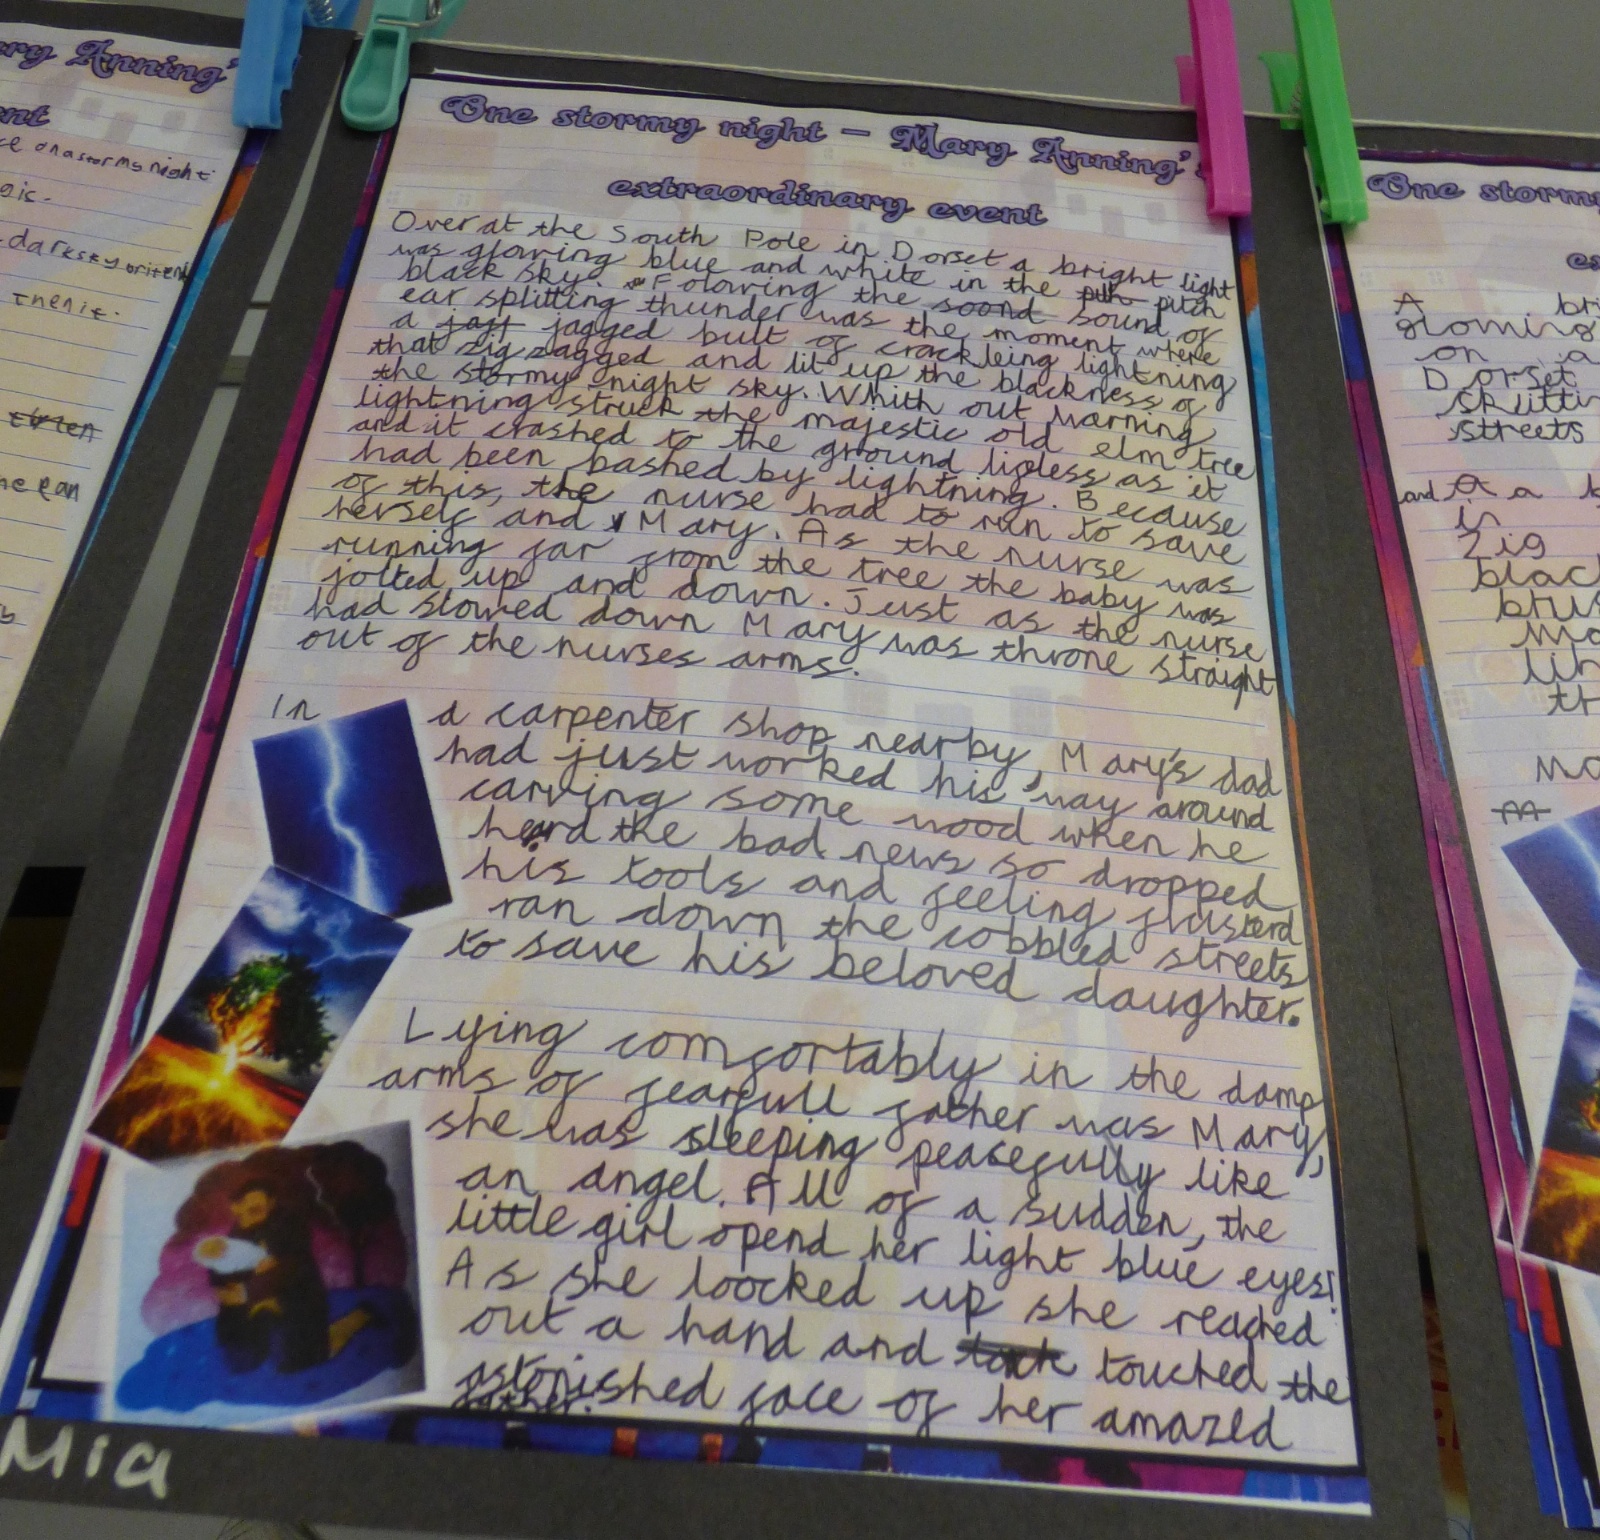 One stormy night – Mary Anning's
extraordinary event
Over at the South Pole in Dorset a bright light
was glowing blue and white in the pitch
black sky. Folowing the soond sound of
ear splitting thunder was the moment where
a jagged bult of crackleing lightning
that zig zagged and lit up the blackness of
the stormy night sky. Whith out warning
lightning struck the majestic old elm tree
and it crashed to the ground lifeless as it
had been bashed by lightning. Because
of this, the nurse had to run to save
herself and Mary. As the nurse was
running far from the tree the baby was
jolted up and down. Just as the nurse
had slowed down Mary was throne straight
out of the nurses arms.
In a carpenter shop nearby Mary's dad
had just worked his way around
carving some wood when he
heard the bad news so dropped
his tools and feeling flusterd
ran down the cobbled streets
to save his beloved daughter.
Lying comfortably in the damp
arms of fearfull father was Mary,
she was sleeping peacefully like
an angel. All of a sudden, the
little girl opend her light blue eyes!
As she loocked up she reached
out a hand and touched the
astonished face of her amazed
father.
Mia
ry Anning'
nt
e on a stormy night
dark sky
then it.
he ran
One stormy
A bri
glowing
on a
Dorset
streets
and a b
in
zig
blac